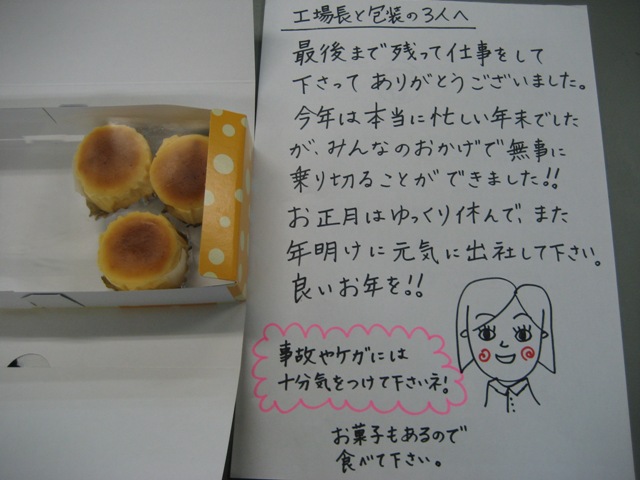 工場長と包装の3人へ
最後まで残って仕事をして
下さって ありがとうございました。
今年は本当に忙しい年末でした
が、みんなのおかげで無事に
乗り切ることができました!!
お正月はゆっくり休んで、また
年明けに元気に出社して下さい。
良いお年を!!
事故やケガには
十分気をつけて下さいネ!
お菓子もあるので
食べて下さい。